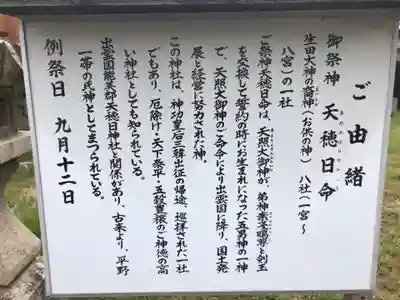 ご由緒
御祭神 天穂日命
生田大神の裔神（お供の神） 八社（一宮〜
八宮）の一社
ご祭神天穂日命は、天照大御神が、弟神素戔嗚尊と剣玉
を交換して誓約の時にお生まれになった五男神の一神
で、天照大御神のご命令により出雲国に降り、国土発
展と経営に努力された神。
この神社は、神功皇后三韓征伐の帰途、巡拝された一社
でもあり、厄除け・天下泰平・五穀豊穣のご神徳の高
い神社としても知られている。
出雲国能義郡天穂日神社と関係があり、古来より、平野
一帯の氏神としてまつられている。
例祭日 九月十二日